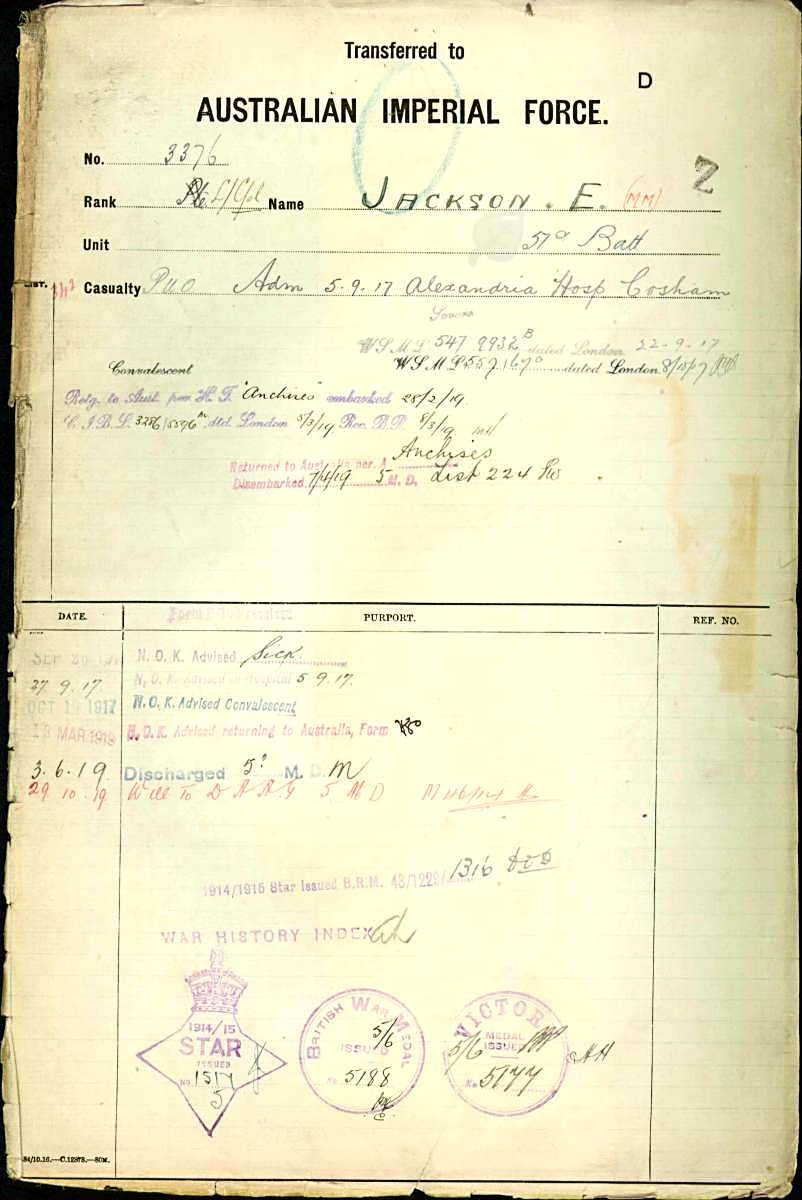 Transferred to
D
AUSTRALIAN IMPERIAL FORCE.
No. 3376
Z
Rank Pte L/Cpl Name JACKSON. E. (MM)
Unit 51st Batt
Casualty PUO Adm 5-9-17 Alexandria Hosp Cosham
Severe
W.S.M.L. 547 9932 B dated London 22-9-17
Convalescent W.S.M.L. 557 167 dated London 8/10/17
Retg. to Aust. per H.T. "Anchises" embarked 28/2/19.
C.I.B.L. 3286/5596 dtd. London 5/3/19 Rec. B.R. 8/3/19
Returned to Australia per. A Anchises
Disembarked 7/4/19 5 M.D. List 224
DATE. PURPORT. REF. NO.
N.O.K. Advised Sick.
27.9.17. N.O.K. Advised in Hospital 5 9.17.
OCT 1917 N.O.K. Advised Convalescent
13 MAR 1919 N.O.K. Advised returning to Australia, Form
3.6.19 Discharged 5 M.D.
29 10 19 Will To D A A G 5 M D
1914/1915 Star Issued B.R.M. 43/1229/ 1316
WAR HISTORY INDEX
1914/15
STAR
ISSUED
No. 1517
5
BRITISH WAR MEDAL
5/6
ISSUED
No. 5188
VICTORY
MEDAL
5/6 ISSUED
No. 5177
84/10.16.—C.12878.—50M.